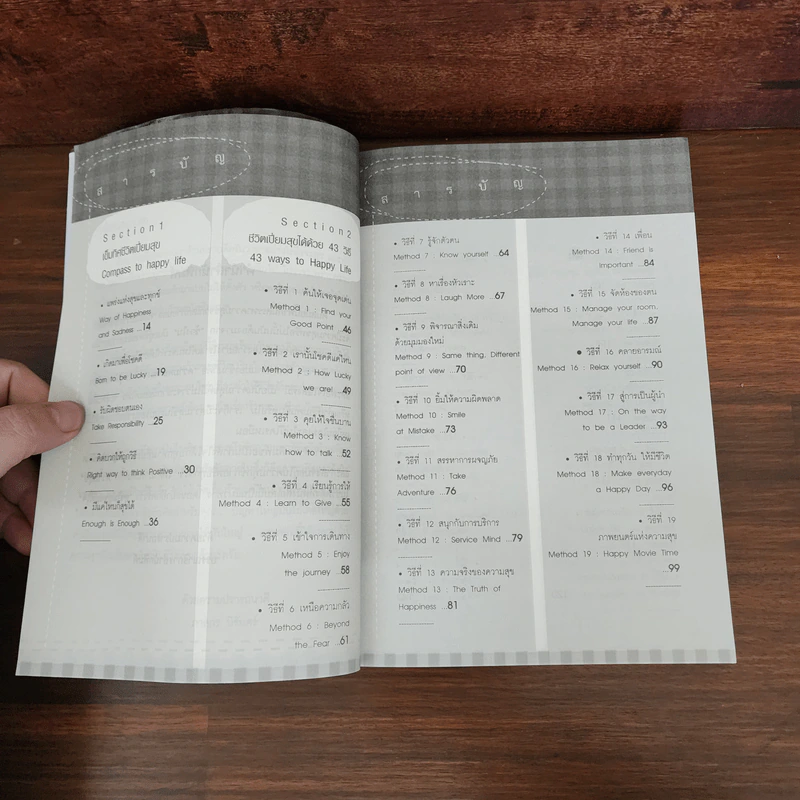 สารบัญ
Section1
เข็มทิศชีวิตเปี่ยมสุข
Compass to happy life
• แหล่งแห่งสุขและทุกข์
Way of Happiness
and Sadness ...14
• เกิดมาเพื่อโชคดี
Born to be Lucky ...19
• รับผิดชอบตนเอง
Take Responsibility ...25
• คิดบวกให้ถูกวิธี
Right way to think Positive ...30
• มีแค่ไหนก็สุขได้
Enough is Enough ...36
Section2
ชีวิตเปี่ยมสุขได้ด้วย 43 วิธี
43 ways to Happy Life
• วิธีที่ 1 ค้นให้เจอจุดเด่น
Method 1 : Find your
Good Point ...46
• วิธีที่ 2 เรานั้นโชคดีแค่ไหน
Method 2 : How Lucky
we are! ...49
• วิธีที่ 3 คุยให้ใจชื่นบาน
Method 3 : Know
how to talk ...52
• วิธีที่ 4 เรียนรู้การให้
Method 4 : Learn to Give ...55
• วิธีที่ 5 เข้าใจการเดินทาง
Method 5 : Enjoy
the journey ...58
• วิธีที่ 6 เหนือความกลัว
Method 6 : Beyond
the Fear ...61
สารบัญ
• วิธีที่ 7 รู้จักตัวตน
Method 7 : Know yourself ...64
• วิธีที่ 8 หาเรื่องหัวเราะ
Method 8 : Laugh More ...67
• วิธีที่ 9 พิจารณาสิ่งเดิม
ด้วยมุมมองใหม่
Method 9 : Same thing, Different
point of view ...70
• วิธีที่ 10 ยิ้มให้ความผิดพลาด
Method 10 : Smile
at Mistake ...73
• วิธีที่ 11 สรรหาการผจญภัย
Method 11 : Take
Adventure ...76
• วิธีที่ 12 สนุกกับการบริการ
Method 12 : Service Mind ...79
• วิธีที่ 13 ความจริงของความสุข
Method 13 : The Truth of
Happiness ...81
• วิธีที่ 14 เพื่อน
Method 14 : Friend is
important ...84
• วิธีที่ 15 จัดห้องของตน
Method 15 : Manage your room,
Manage your life ...87
• วิธีที่ 16 คลายอารมณ์
Method 16 : Relax yourself ...90
• วิธีที่ 17 สู่การเป็นผู้นำ
Method 17 : On the way
to be a Leader ...93
• วิธีที่ 18 ทำทุกวัน ให้มีชีวิต
Method 18 : Make everyday
a Happy Day ...96
• วิธีที่ 19
ภาพยนตร์แห่งความสุข
Method 19 : Happy Movie Time
...99